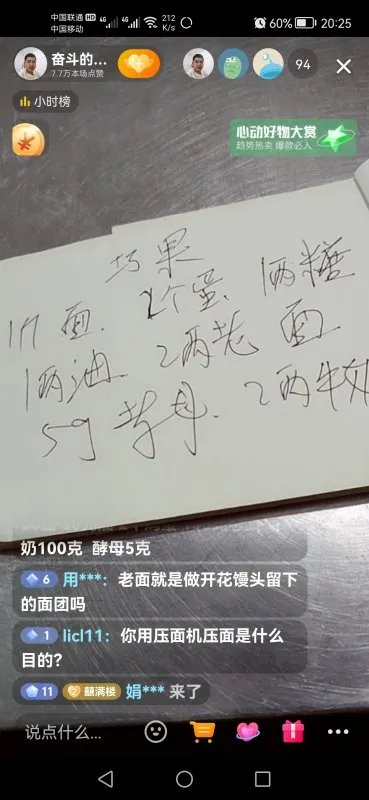 中国联通 HD 4G 4G 212 K/s 60% 20:25
中国移动
奋斗的...
7.7万本场点赞
94
小时榜
心动好物大赏
趋势热卖 爆款必入
巧果
1斤面、2个蛋、1两糖
1两油、2两老面
5g 酵母、2两牛奶
奶100克 酵母5克
6 用***：老面就是做开花馒头留下
的面团吗
1 licl11：你用压面机压面是什么
目的?
11 囍满楼 娟*** 来了
说点什么...